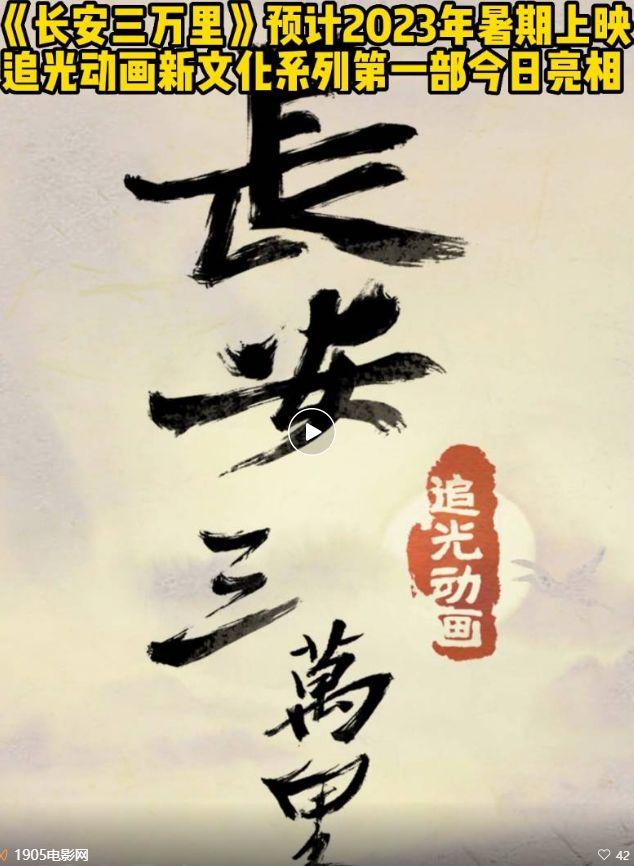 《长安三万里》预计2023年暑期上映
追光动画新文化系列第一部今日亮相
長安三萬里
追光动画
1905电影网
42